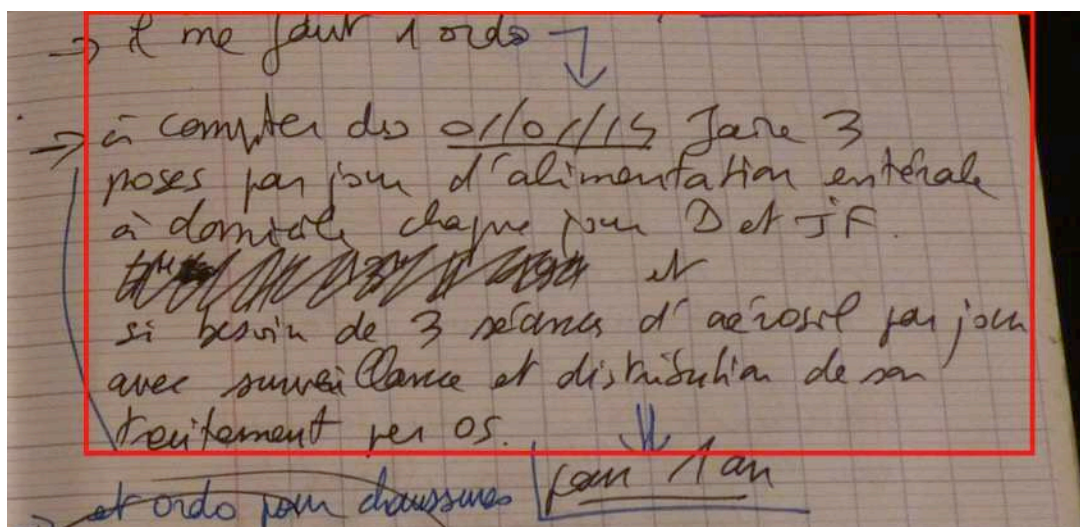 → il me faut 1 ordo
→ à compter du 01/01/15 faire 3
poses par jour d'alimentation entérale
à domicile chaque jour D et JF.
et
si besoin de 3 séances d'aérosol par jour
avec surveillance et distribution de son
traitement per os.
et ordo pour chaussures pour 1 an